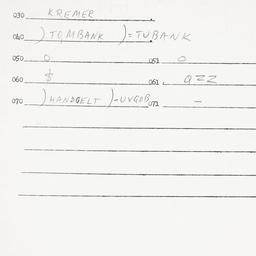 030 KREMER
040 ) TOMBANK ) = TUBANK
050 0 051 0
060 $ 061 azz
070 ) HANDGELT ) - UVGOB 071 -